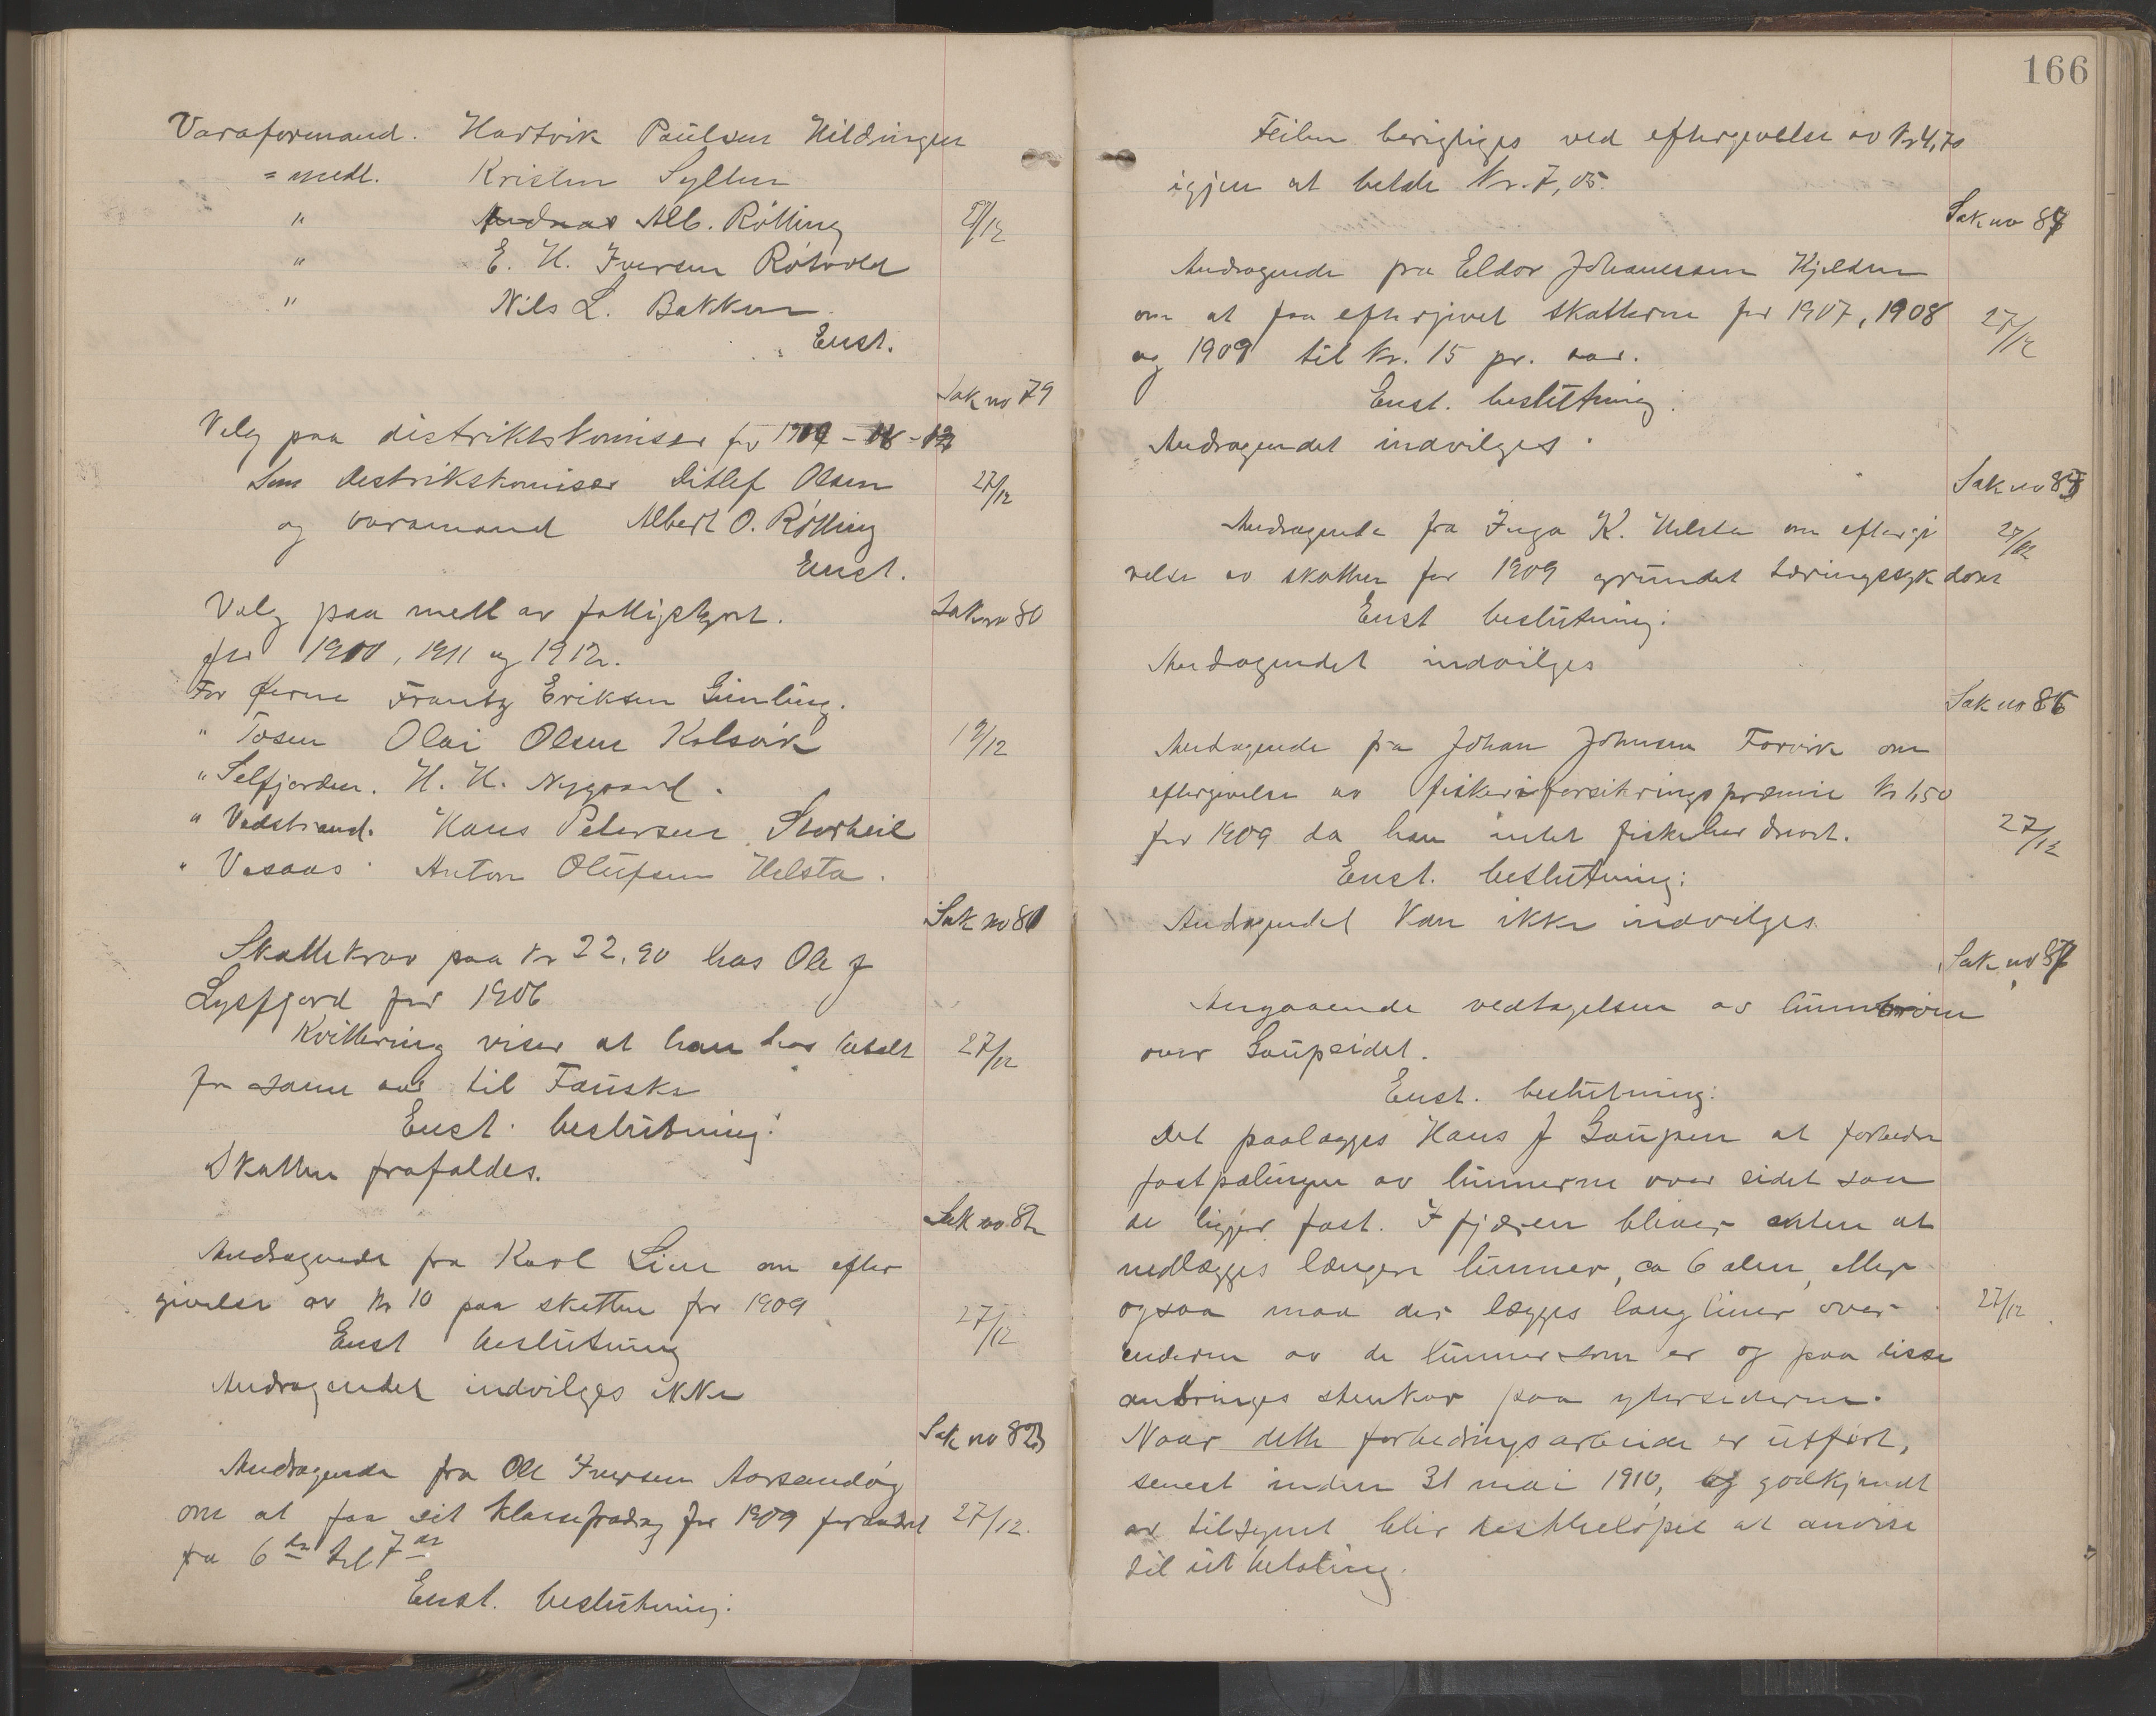 Varaformand. Hartvik Paulsen Hildingen
= medl. Kristen Syllen
" Andreas Alb. Rölling 27/12
" E. H. Iversen Röivold
" Nils L. Bakken
Enst.
Sak no 79
Valg paa distriktskomisær for
Som destrikskomisær Ditlef Olsen 27/12
og varamand Albert O. Rölling
Enst.
Valg paa medl av fattigstyret. Sak no 80
for 1910, 1911 og 1912.
For Øerne Frantz Eriksen Gimling.
" Tosen Olai Olsen Kolsvik 19/12
" Selfjorden. H. H. Nygaard.
" Vedstrand. Hans Petersen Storheil
" Vasaas Anton Olufsen Helsta.
Sak no 81
Skattekrav paa Kr 22,90 hos Ole J
Lysfjord for 1906
Kvittering viser at han har betalt 27/12
for samme aar til Fauske
Enst. beslutning:
Skatten frafaldes.
Sak no 82
Andragende fra Karl Lien om efter
givelse av Kr 10 paa skatten for 1909 27/12
Enst beslutning
Andragendet indvilges ikke
Sak no 83
Andragende fra Ole Iversen Aarsandøy
om at faa sit klassefradrag for 1909 forandret 27/12.
fra 6te til 7de
Enst. beslutning:
166
Feilen berigtiges ved eftergivelse av Kr 4,70
igjen at betale Kr. 7,05.
Sak no 84
Andragende fra Eldor Johanessen Kjelden
om at faa eftergivet skatterne for 1907, 1908 27/12
og 1909 til Kr. 15 pr. aar.
Enst. beslutning:
Andragendet indvilges.
Sak no 85
Andragende fra Inga K. Helsta om eftergi 27/12
velse av skatten for 1909 grundet tæringssykdom
Enst beslutning:
Andragendet indvilges
Sak no 86
Andragende fra Johan Johnsen Forvik om
eftergivelse av fiskeriforsikringspræmie Kr 1,50
for 1909 da han intet fiske har drevet. 27/12
Enst. beslutning:
Andragendet kan ikke indvilges.
Sak no 87
Angaaende vedtagelsen av lunnbroen
over Gaupeidet.
Enst. beslutning:
Det paalægges Hans J Gaupen at forbedre
fastpælingen av lunnerne over eidet saa
de ligger fast. I fjæren bliver enten at
nedlægges længere lunner, ca 6 alen, eller
ogsaa maa der lægges langliner over 27/12
enderne av de lunner som er og paa disse
anbringes stenkar paa ytersiderne.
Naar dette forbedringsarbeide er utført,
senest inden 31 mai 1910, og godkjendt
av tilsynet blir restbeløpet at anvise
til utbetaling.